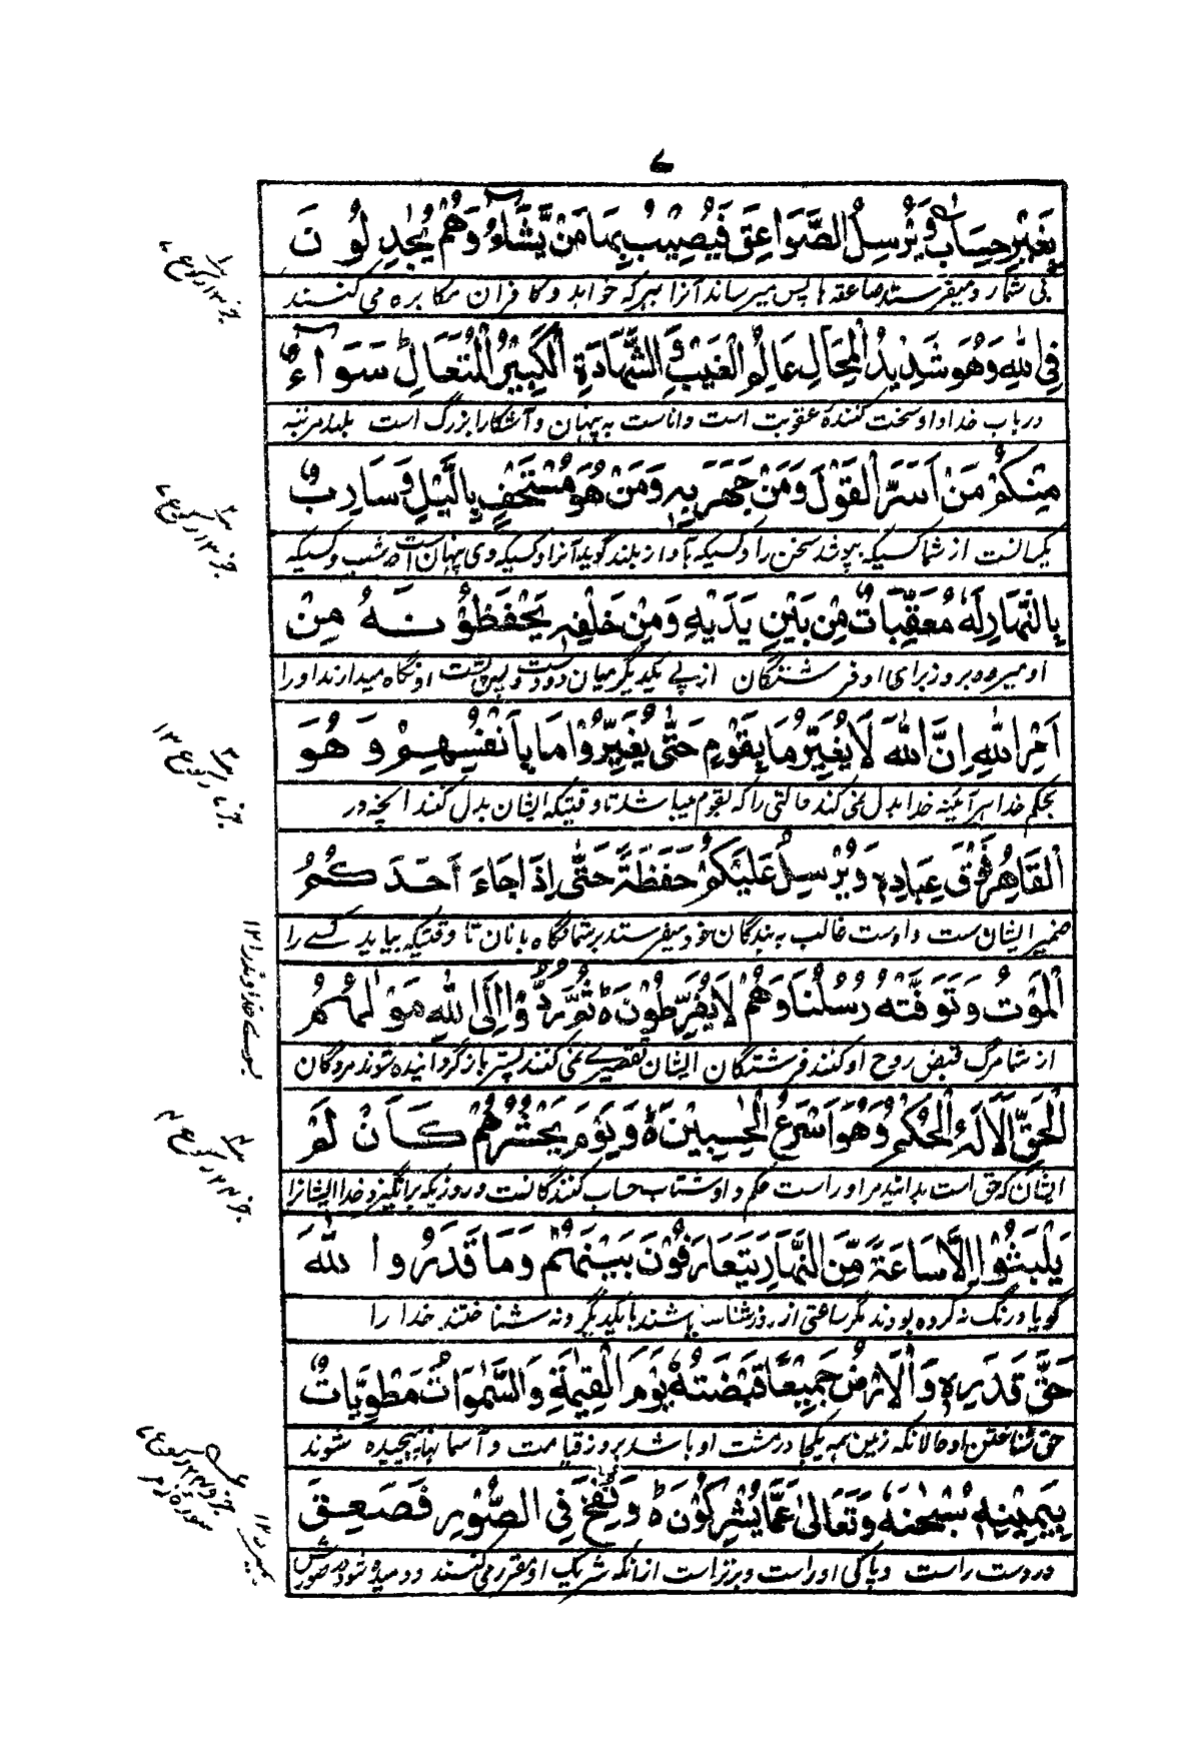 ۷
بِغَيْرِ حِسَابٍ وَيُرْسِلُ الصَّوَاعِقَ فَيُصِيبُ بِهَا مَنْ يَّشَآءُ وَهُمْ يُجٰدِلُونَ
بی شمار و میفرستد صاعقه ها پس میرساند آنرا بهر که خواهد و کافران مکابره می کنند
فِي اللهِ وَهُوَ شَدِيْدُ الْمِحَالِ عَالِمُ الْغَيْبِ وَ الشَّهَادَةِ الْكَبِيْرُ الْمُتَعَالِ ط سَوَآءٌ
در باب خدا و او سخت کننده عقوبت است داناست به پنهان و آشکارا بزرگ است بلند مرتبه
مِنْكُمْ مَنْ اَسَرَّ الْقَوْلَ وَمَنْ جَهَرَ بِهٖ وَمَنْ هُوَ مُسْتَخْفٍ بِالَّيْلِ وَسَارِبٌ
یکسانست از شما کسیکه بپوشد سخن را و کسیکه بآواز بلند گوید آنرا و کسیکه وی پنهان است در شب و کسیکه
بِالنَّهَارِ لَهٗ مُعَقِّبَاتٌ مِّنْ بَيْنِ يَدَيْهِ وَمِنْ خَلْفِهٖ يَحْفَظُوْنَهٗ مِنْ
او میرود بروز برای او فرشتگان از پے یکدیگر میان دو دست و پس پشت او نگاه میدارند او را
اَمْرِ اللهِ اِنَّ اللهَ لَا يُغَيِّرُ مَا بِقَوْمٍ حَتّٰى يُغَيِّرُوْا مَا بِاَنْفُسِهِمْ وَهُوَ
بحکم خدا هر آئینه خدا بدل نمی کند حالتی را که بقوم میباشد تا وقتیکه ایشان بدل کنند آنچه در
الْقَاهِرُ فَوْقَ عِبَادِهٖ وَيُرْسِلُ عَلَيْكُمْ حَفَظَةً حَتّٰى اِذَا جَاءَ اَحَدَكُمُ
ضمیر ایشان ست و اوست غالب به بندگان خود میفرستد بر شما نگاه بانان تا وقتیکه بیاید کسے را
الْمَوْتُ وَتَوَفَّتْهُ رُسُلُنَا وَهُمْ لَا يُفَرِّطُوْنَ ه ط ثُمَّ رُدُّوْا اِلَى اللهِ مَوْلٰىهُمُ
از شما مرگ قبض روح او کنند فرشتگان ایشان تقصیرے نمی کنند پستر باز گردانیده شوند مردگان
الْحَقِّ اَلَا لَهُ الْحُكْمُ وَهُوَ اَسْرَعُ الْحٰسِبِيْنَ ه ط وَيَوْمَ يَحْشُرُهُمْ كَاَنْ لَّمْ
ایشان که حق است بدانید مر او راست حکم و او شتاب حساب کنندگانست و روزیکه برانگیزد خدا ایشانرا
يَلْبَثُوْا اِلَّا سَاعَةً مِّنَ النَّهَارِ يَتَعَارَفُوْنَ بَيْنَهُمْ وَمَا قَدَرُوا اللهَ
گویا درنگ نکرده بودند مگر ساعتی از روز شناسا باشند با یکدیگر و نه شناختند خدا را
حَقَّ قَدْرِهٖ وَالْاَرْضُ جَمِيْعًا قَبْضَتُهٗ يَوْمَ الْقِيٰمَةِ وَالسَّمٰوَاتُ مَطْوِيَّاتٌ
حق شناختن او حالانکه زمین همه یکجا در مشت او باشد بروز قیامت و آسمانها پیچیده شوند
بِيَمِيْنِهٖ سُبْحٰنَهٗ وَتَعَالٰى عَمَّا يُشْرِكُوْنَ ه ط وَنُفِخَ فِي الصُّوْرِ فَصَعِقَ
در دست راست و پاکی او راست و برتر است از آنکه شریک او مقرر می کنند و دمیده شود در صور پس
بسوے خداوند را ۱۲